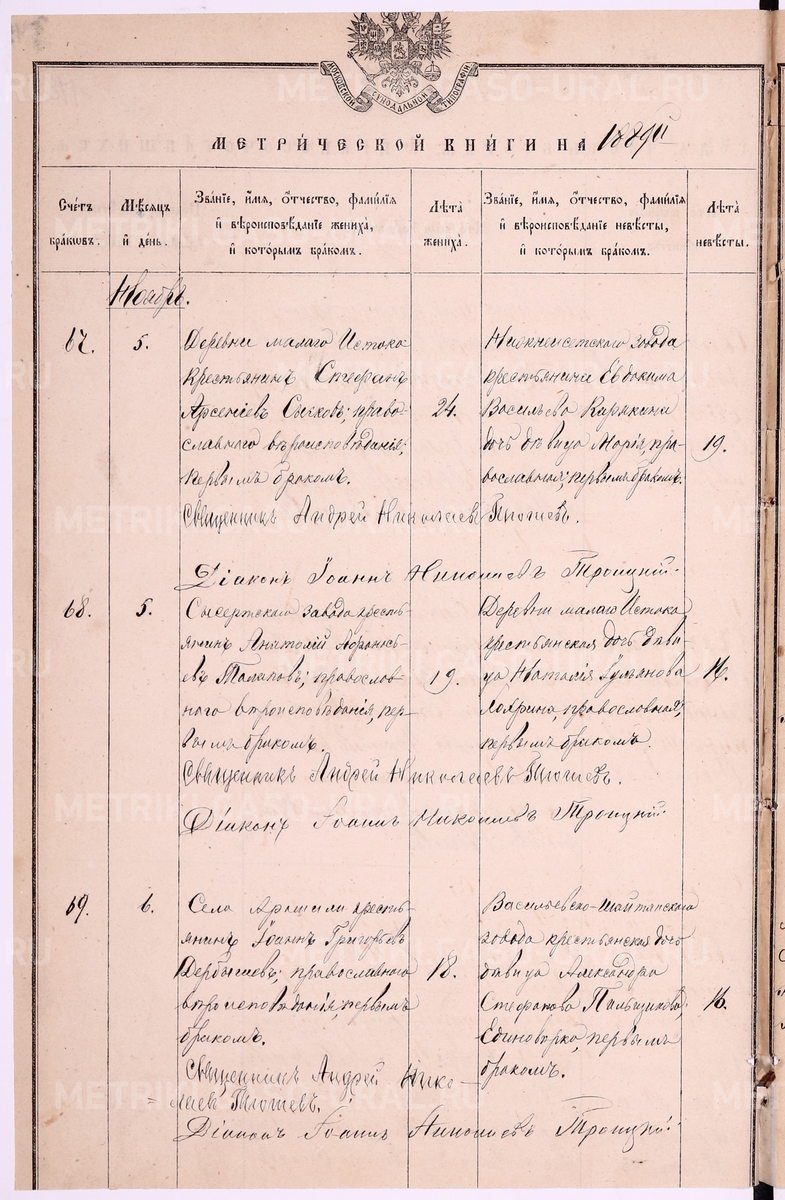 МОСКОВСКОЙ СѴНОДАЛЬНОЙ ТИПОГРАФІИ
МЕТРИ́ЧЕСКОЙ КНИ́ГИ НА 1889
Сче́тъ бра́кωвъ.
Мѣ́сяцъ и҆ де́нь.
Зва́нїе, и҆́мя, ѻ҆́тчество, фами́лїя
и҆ вѣроисповѣ́данїе жениха̀,
и҆ кото́рымъ бра́комъ.
Лѣ̀та жениха̀.
Зва́нїе, и҆́мя, ѻ҆́тчество, фами́лїя
и҆ вѣроисповѣ́данїе невѣ́сты,
и҆ кото́рымъ бра́комъ.
Лѣ̀та невѣ́сты.
Ноябрь.
67. 5.
Деревни малаго Истока
крестьянинъ Стефанъ
Арсеніевъ Сычковъ; право-
славнаго вѣроисповѣданія;
первымъ бракомъ.
24.
Нижнеисетскаго завода
крестьянина Евдокима
Васильева Карякина
дочь дѣвица Марія, пра-
вославная; первымъ бракомъ.
19.
Священникъ Андрей Николаевъ Тюшевъ.
Діаконъ Іоаннъ Николаевъ Троицкій.
68. 5.
Сысертскаго завода кресть-
янинъ Анатолій
евъ Талаповъ; православ-
наго вѣроисповѣданія, пер-
вымъ бракомъ.
19.
Деревни малаго Истока
крестьянская дочь дѣви-
ца Наталія Гульянова
православная;
первымъ бракомъ.
16.
Священникъ Андрей Николаевъ Тюшевъ.
Діаконъ Іоаннъ Николаевъ Троицкій.
69. 6.
Села Арамили кресть-
янинъ Іоаннъ Григорьевъ
Дербышевъ; православнаго
вѣроисповѣданія, первымъ
бракомъ.
18.
Васильевско-Шайтанскаго
завода крестьянская дочь
дѣвица Александра
Стефанова Пильщикова,
Единоверка, первымъ
бракомъ.
16.
Священникъ Андрей Нико-
лаевъ Тюшевъ.
Діаконъ Іоаннъ Николаевъ Троицкій.
METRIKI.GASO-URAL.RU